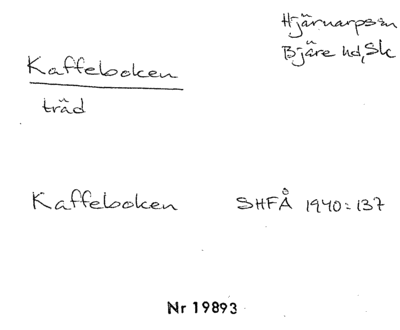 Hjärnarpssn
Bjäre hd, Sk
Kaffeboken
träd
Kaffeboken SHFÅ 1940:137
Nr 19893